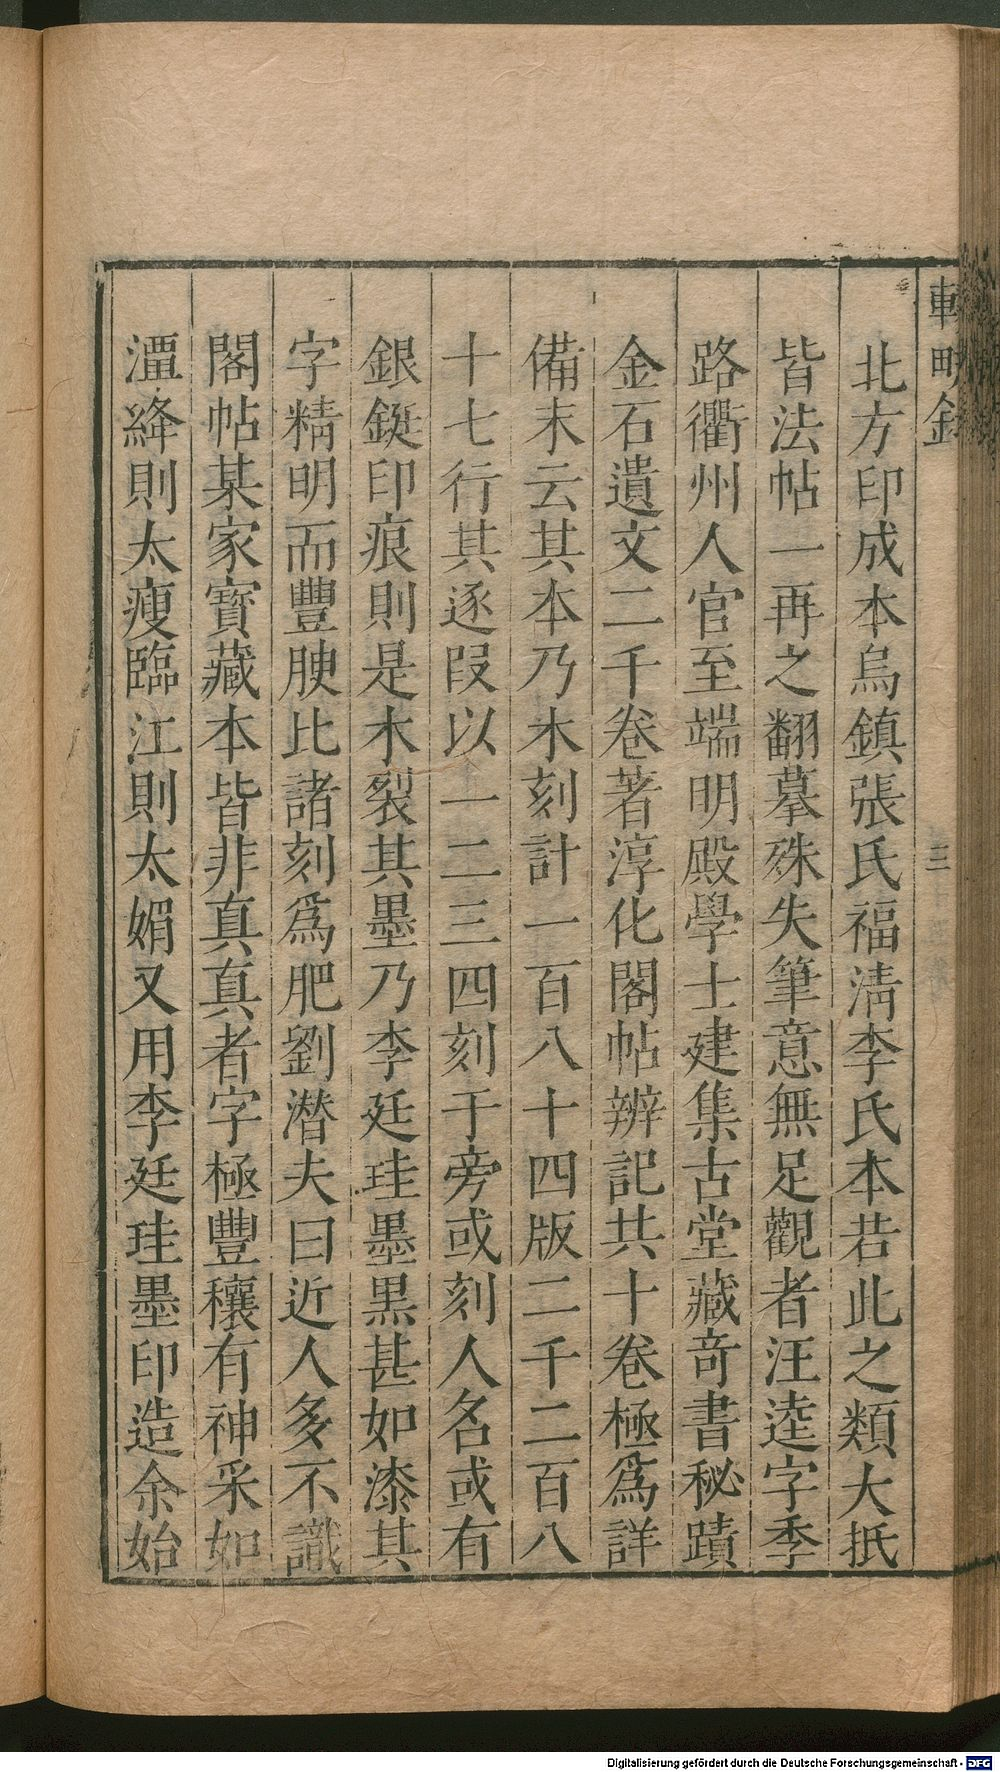 北方印成本烏鎮張氏福淸李氏本若此之類大抵
皆法帖一再之翻摹殊失筆意無足觀者汪逵字季
路衢州人官至端明殿學士建集古堂藏竒書秘蹟
金石遺文二千卷著淳化閣帖辨記共十卷極爲詳
備末云其本乃木刻計一百八十四版二千二百八
十七行其逐段以一二三四刻于旁或刻人名或有
銀鋌印痕則是木裂其墨乃李廷珪墨黒甚如漆其
字精明而豐腴比諸刻爲肥劉潜夫曰近人多不識
閣帖某家寶藏本皆非真真者字極豐穰有神采如
潭絳則太瘦臨江則太媚又用李廷珪墨印造余始
三
Digitalisierung gefördert durch die Deutsche Forschungsgemeinschaft - DFG